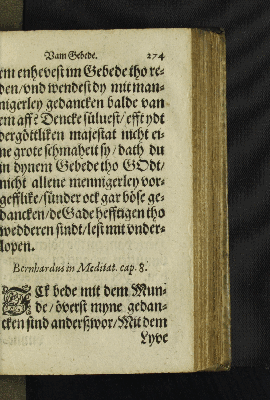 Vam Gebede. 274
em enhevest im Gebede tho re-
den/vnd wendest dy mit man-
nigerley gedancken balde van
em aff? Dencke süluest/efft ydt
der göttliken majestat nicht ei-
ne grote schmaheit sy/dath du
in dynem Gebede tho GOdt/
nicht allene mennigerley vor-
gefflike/sünder ock gar böse ge-
dancken/de Gade hefftigen tho
wedderen sindt/lest mit vnder-
lopen.
Bernhardus in Meditat. cap. 8.
ICk bede mit dem Mun-
de/överst myne gedan-
cken sind anderßwor/Mit dem
Lyve